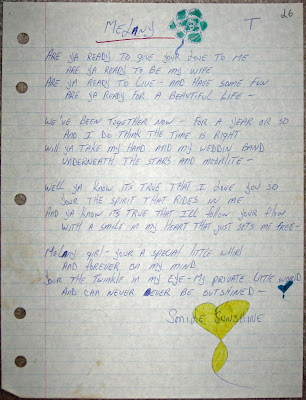 26
MELANY
T
ARE YA READY TO GIVE YOUR LOVE TO ME
ARE YA READY TO BE MY WIFE
ARE YA READY TO LIVE - AND HAVE SOME FUN
ARE YA READY FOR A BEAUTIFUL LIFE -
WE'VE BEEN TOGETHER NOW - FOR A YEAR OR SO
AND I DO THINK THE TIME IS RIGHT
WILL YA TAKE MY HAND AND MY WEDDIN BAND
UNDERNEATH THE STARS AND MOONLITE -
WELL YA KNOW ITS TRUE THAT I LOVE YOU SO
YOUR THE SPIRIT THAT RIDES IN ME
AND YA KNOW ITS TRUE THAT I'LL FOLLOW YOUR FLOW
WITH A SMILE IN MY HEART THAT JUST SETS ME FREE -
MELANY GIRL - YOUR A SPECIAL LITTLE WHIRL
AND FOREVER ON MY MIND
YOUR THE TWINKLE IN MY EYE - MY PRIVATE LITTLE WORLD
AND CAN NEVER EVER BE OUTSHINED -
SMILE SUNSHINE